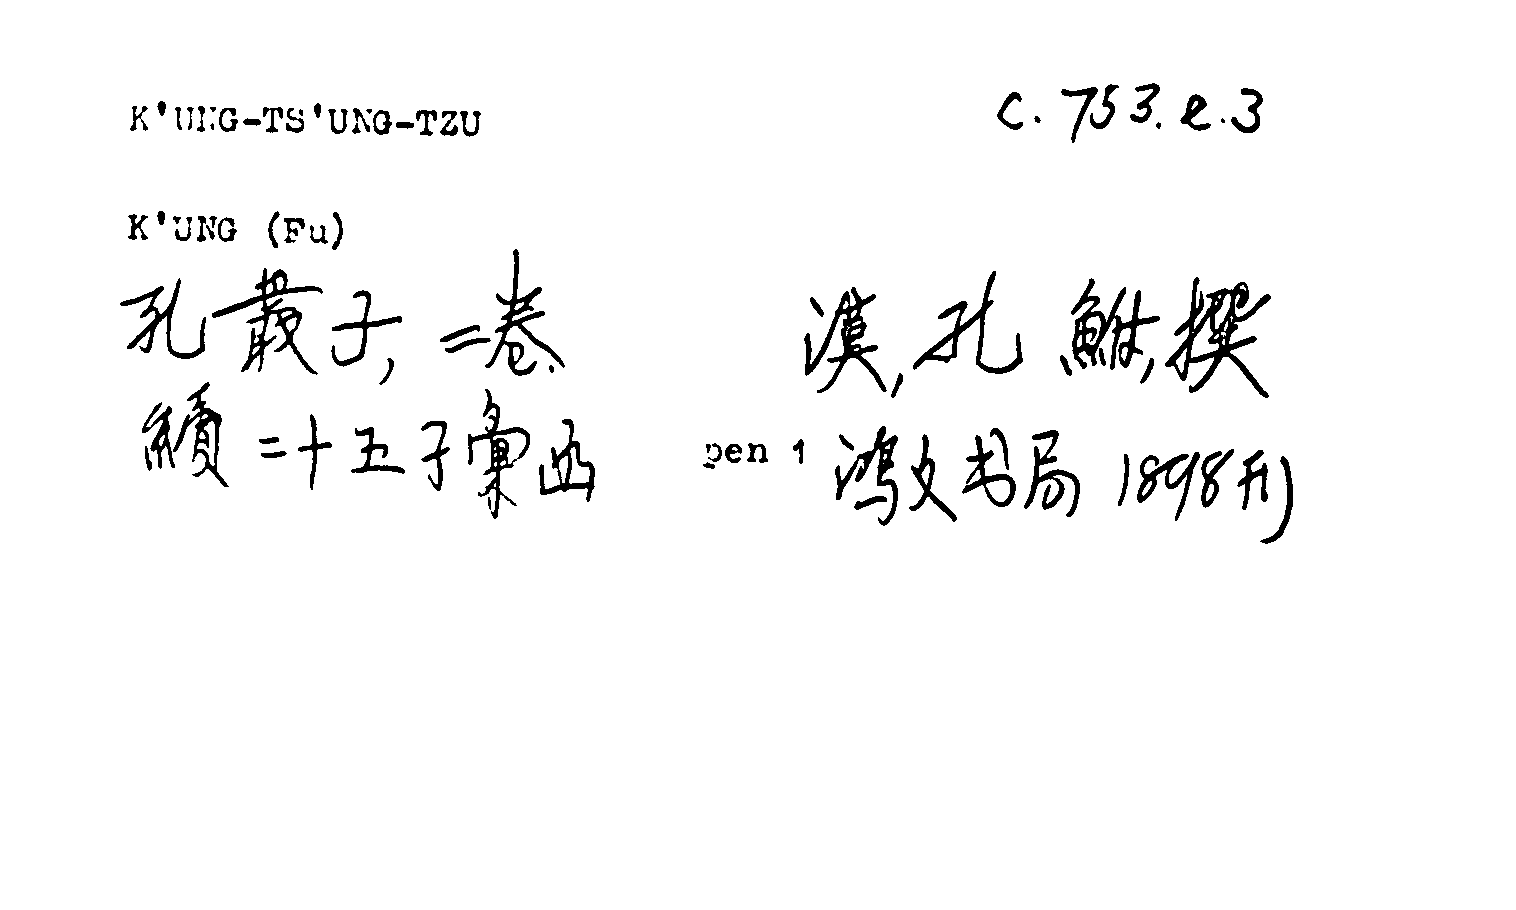 K'UNG-TS'UNG-TZU c.753.e.3
K'UNG (Fu)
孔叢子, 二卷. 漢, 孔鮒, 撰
續二十五子彙函 pen 1 鸿文书局 1898刊